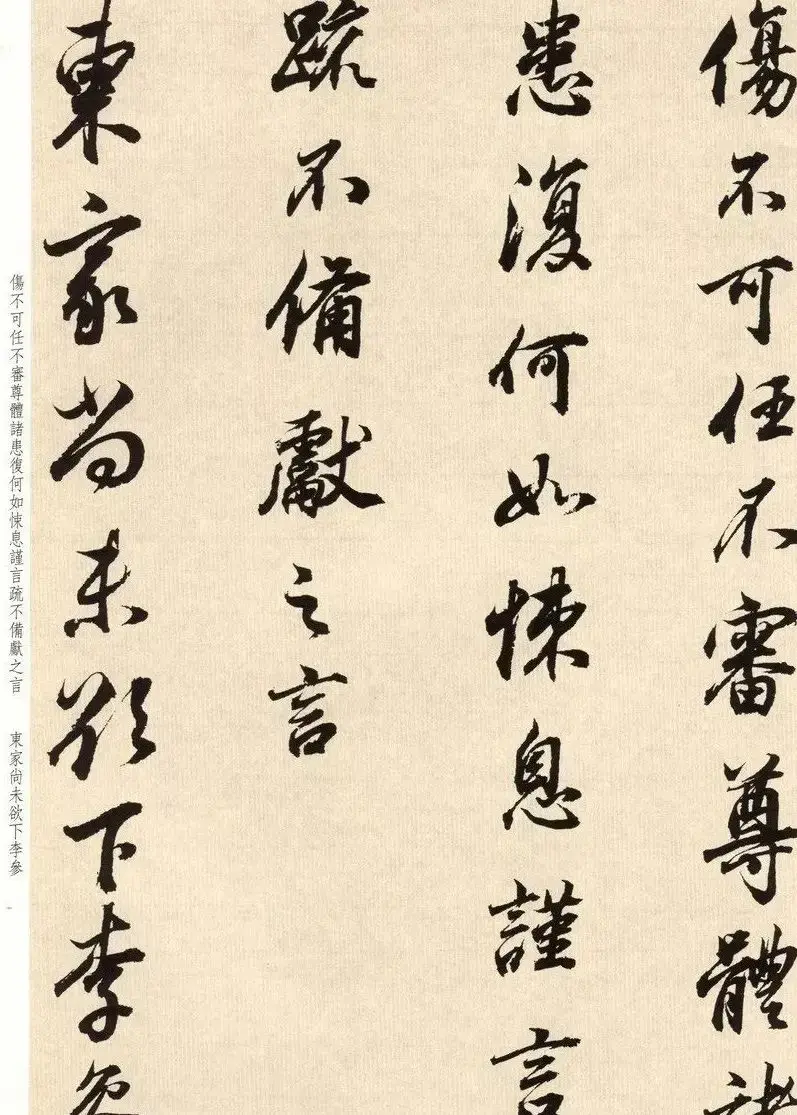 傷不可任不審尊體諸
患復何如悚息謹言
疏不備獻之言
東家尚未欲下李參
傷不可任不審尊體諸患復何如悚息謹言疏不備獻之言 東家尚未欲下李參